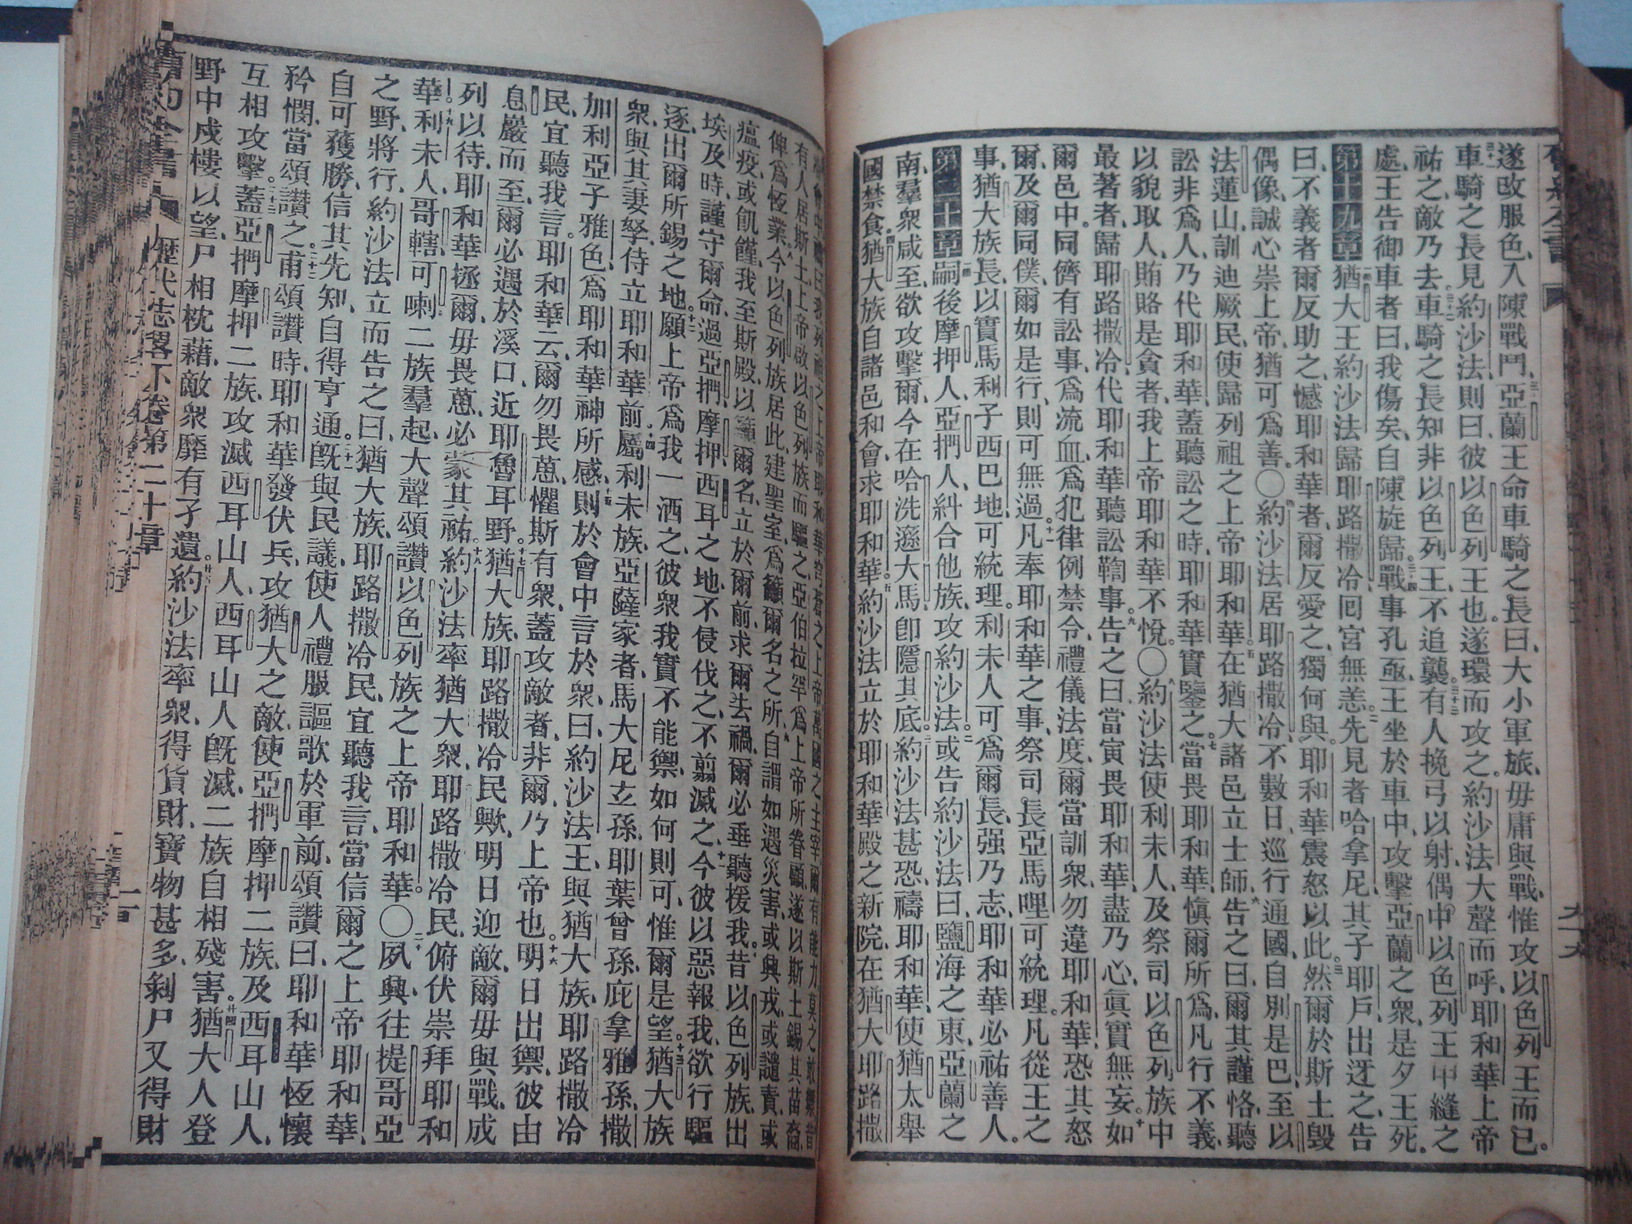 遂改服色、入陳戰鬥、亞蘭王命車騎之長曰、大小軍旅、毋庸與戰、惟攻以色列王而已。
車騎之長見約沙法、則曰、彼以色列王也、遂環而攻之、約沙法大聲而呼、耶和華上帝
祐之、敵乃去、車騎之長知非以色列王、不追襲。有人挽弓以射、偶中以色列王甲縫之
處、王告御車者曰、我傷矣、自陳旋歸。戰事孔亟、王坐於車中、攻擊亞蘭之衆、是夕王死。
第十九章 猶大王約沙法歸耶路撒冷、囘宮無恙。先見者哈拿尼其子耶戶出迓之、告
曰、不義者爾反助之、憾耶和華者、爾反愛之、獨何與、耶和華震怒以此。然爾於斯土毀
偶像、誠心崇上帝、猶可爲善。○約沙法居耶路撒冷、不數日、巡行通國、自別是巴、至以
法蓮山、訓迪厥民、使歸列祖之上帝耶和華。在猶大諸邑立士師、告之曰、爾其謹恪、聽
訟非爲人、乃代耶和華、蓋聽訟之時、耶和華實鑒之。當畏耶和華、愼爾所爲、凡行不義、
以貌取人、賄賂是貪者、我上帝耶和華不悅。○約沙法使利未人、及祭司、以色列族中
最著者、歸耶路撒冷、代耶和華聽訟鞫事。告之曰、當寅畏耶和華、盡乃心、眞實無妄、如
爾邑中、同儕有訟事、爲流血、爲犯律例禁令禮儀法度、爾當訓衆、勿違耶和華、恐其怒
爾、及爾同僕、爾如是行、則可無過。凡奉耶和華之事、祭司長亞馬哩可統理。凡從王之
事、猶大族長、以實馬利子西巴地、可統理。利未人可爲爾長、强乃志、耶和華必祐善人。
第二十章 嗣後摩押人、亞捫人、糾合他族、攻約沙法。或告約沙法曰、鹽海之東、亞蘭之
南、羣衆咸至、欲攻擊爾、今在哈洗遜大馬、卽隱其底。約沙法甚恐、禱耶和華、使猶太舉
國禁食。猶大族自諸邑和會、求耶和華。約沙法立於耶和華殿之新院、在猶大耶路撒
有人居斯土、上帝敬以色列族而驅之、亞伯拉罕爲上帝所眷顧、遂以斯土錫其苗裔、
俾爲恆業、今以色列族居此、建聖室、爲籲爾名之所。自謂如遇災害、或興戎、或譴責、或
瘟疫、或飢饉、我至斯殿、以籲爾名、立於爾前、求爾去禍、爾必垂聽援我。昔以色列族、出
埃及時、謹守爾命、過亞捫摩押西耳之地、不侵伐之、不翦滅之、今彼以惡報我、欲行驅
逐、出爾所錫之地。願上帝爲我一洒之、彼衆我實不能禦、如何則可、惟爾是望。猶大族
衆、與其妻孥、侍立耶和華前。屬利未族、亞薩家者、馬大尼玄孫、耶葉曾孫、庇拿雅孫、撒
加利亞子雅色、爲耶和華神所感、則於會中言於衆曰、約沙法王、與猶大族、耶路撒冷
民、宜聽我言、耶和華云、爾勿畏葸懼斯有衆、蓋攻敵者、非爾、乃上帝也。明日出禦、彼由
息巖而至、爾必遇於溪口、近耶魯耳野。猶大族、耶路撒冷民歟、明日迎敵、爾毋與戰、成
列以待、耶和華拯爾、毋畏葸、必蒙其祐。約沙法率猶大衆、耶路撒冷民、俯伏崇拜耶和
華。利未人哥轄可喇二族羣起、大聲頌讚以色列族之上帝耶和華。○夙興、往提哥亞
之野、將行、約沙法立而告之曰、猶大族、耶路撒冷民、宜聽我言、當信爾之上帝耶和華、
自可獲勝、信其先知、自得亨通。旣與民議、使人禮服謳歌於軍前、頌讚曰、耶和華恆懷
矜憫、當頌讚之。甫頌讚時、耶和華發伏兵、攻猶大之敵、使亞捫摩押二族、及西耳山人、
互相攻擊。蓋亞捫摩押二族、攻滅西耳山人、西耳山人旣滅、二族自相殘害。猶大人登
野中戍樓以望、尸相枕藉、敵衆靡有孑遺。約沙法率衆、得貨財、寶物甚多、剝尸又得財
歷代志畧下卷第二十章